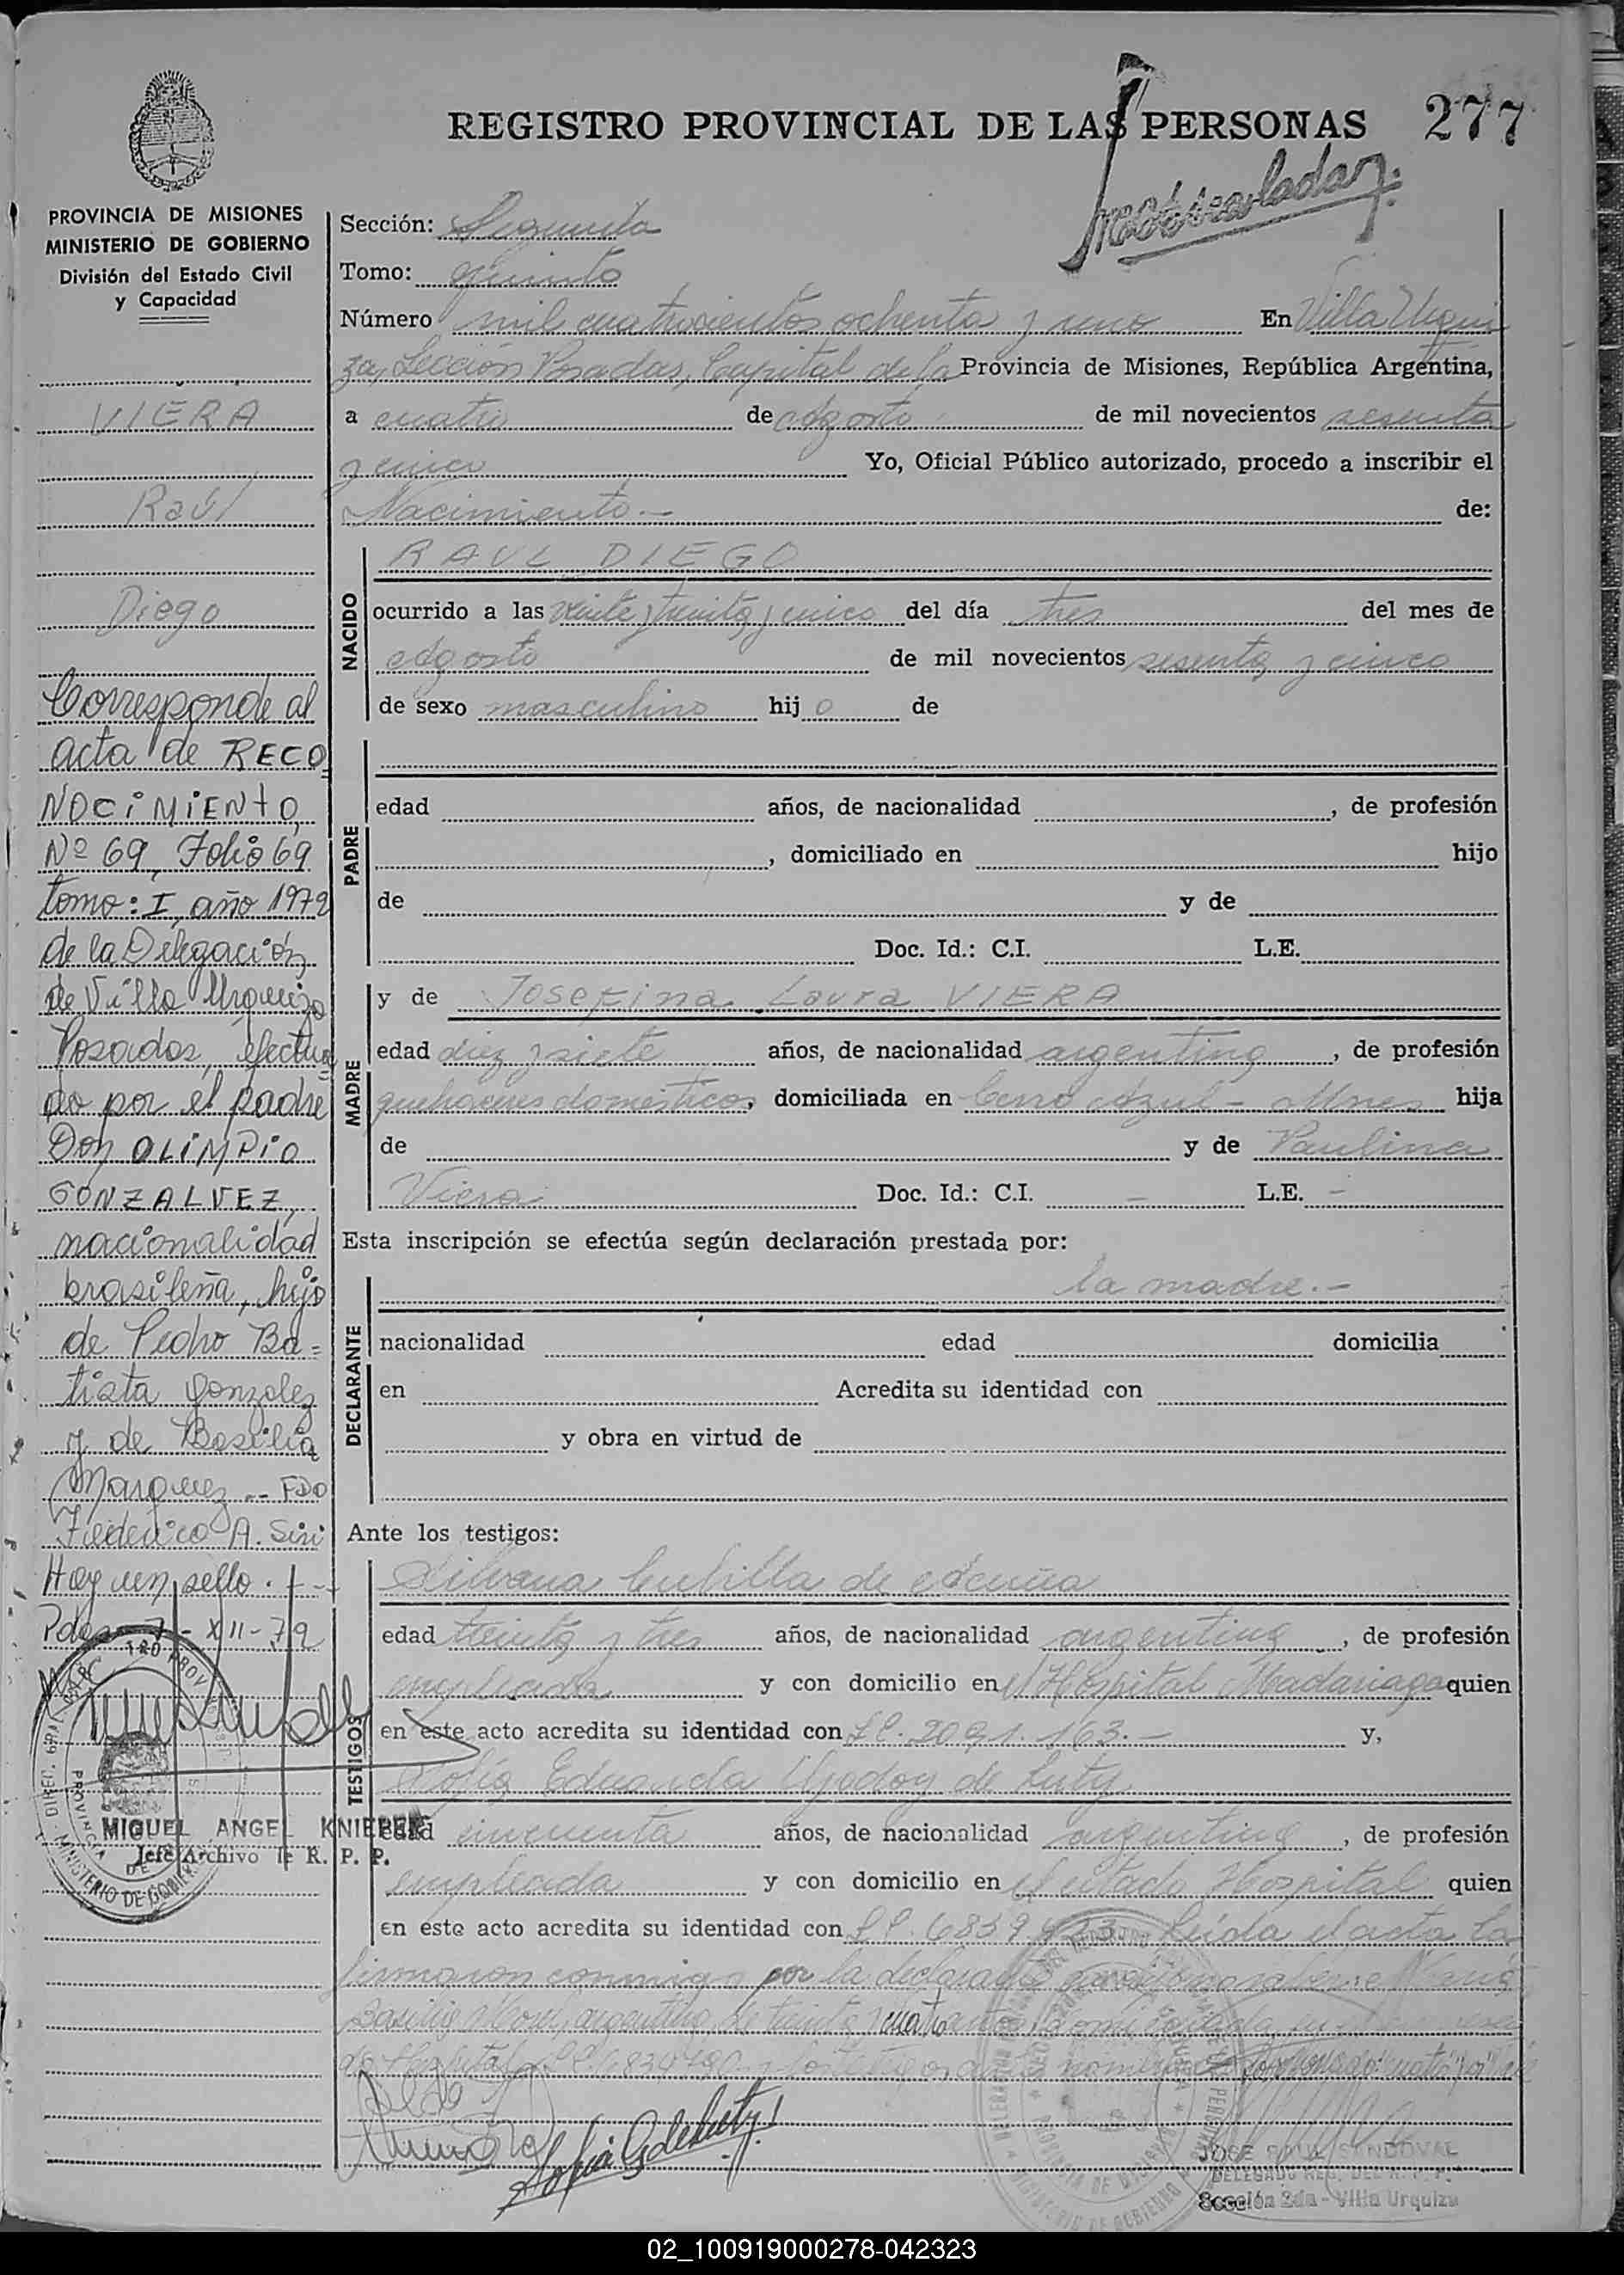 REGISTRO PROVINCIAL DE LAS PERSONAS 277
PROVINCIA DE MISIONES
MINISTERIO DE GOBIERNO
División del Estado Civil
y Capacidad
VIERA
Raúl
Diego
Corresponde al
acta de RECO
NOCIMIENTO,
Nº 69, Folio 69
tomo: I, año 1979
de la Delegación
de Villa Urquiza
Posadas, efectua
do por el padre
Don OLIMPIO
GONZALVEZ,
nacionalidad
brasileña, hijo
de Pedro Ba=
tista Gonzalez
y de Basilia
Marquez.-- FDO
Federico A. Sisi
Hay un sello.--
Pdas 7-XII-79
MIGUEL ANGEL KNIEPER
Jefe Archivo de R. P. P.
Sección: Segunda
Tomo: quinto
Número mil cuatrocientos ochenta y uno En Villa Urqui
za, Sección Posadas, Capital de la Provincia de Misiones, República Argentina,
a cuatro de Agosto de mil novecientos sesenta
y cinco Yo, Oficial Público autorizado, procedo a inscribir el
Nacimiento.- de:
NACIDO
RAUL DIEGO
ocurrido a las veinte y treinta y cinco del día tres del mes de
Agosto de mil novecientos sesenta y cinco
de sexo masculino hijo de
PADRE
edad años, de nacionalidad , de profesión
, domiciliado en hijo
de y de
Doc. Id.: C.I. L.E.
MADRE
y de Josefina Laura VIERA
edad diez y siete años, de nacionalidad argentina, de profesión
quehaceres domésticos, domiciliada en Cerro Azul - Mnes hija
de y de Paulina
Viera Doc. Id.: C.I. - L.E. -
Esta inscripción se efectúa según declaración prestada por:
DECLARANTE
la madre.-
nacionalidad edad domicilia
en Acredita su identidad con
y obra en virtud de
Ante los testigos:
TESTIGOS
Silvana Cubilla de Acuña
edad treinta y tres años, de nacionalidad argentina, de profesión
empleada y con domicilio en el Hospital Madariaga quien
en este acto acredita su identidad con 2091.163.- y,
Sofía Eduarda Godoy de Luty
edad cincuenta años, de nacionalidad argentina, de profesión
empleada y con domicilio en el citado Hospital quien
en este acto acredita su identidad con Leída el acta la
firmaron conmigo por la declarante
argentina, de treinta y cuatro
Sofía G de Luty
JOSE RAUL SANDOVAL
DELEGADO REG. DEL R. P. P.
Sección 2da - Villa Urquiza
02_100919000278-042323